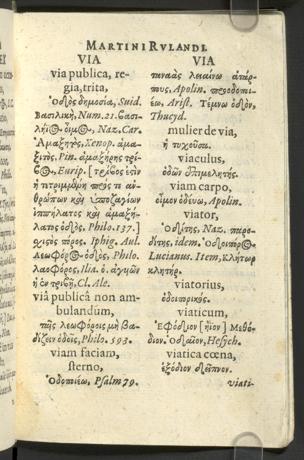 MARTINI RVLANDI.
VIA
via publica, re-
gia, trita,
Ὁδὸς δημοσία, Suid.
Βασιλική, Num. 21. βασι-
Naz. Car.
Ἁμαξηγός, Xenop. ἁμα-
ξιτὸς, Pin. ἁμαξήρης τρί-
Eurip. [τρίβος
ἢ πρός τε ἀν-
θρώπων καὶ ὑποζυγίων
ἱππήλατος καὶ ἁμαξή-
λατος ὁδὸς, Philo. 137.]
πόρος, Iphig. Aul.
ὁδὸς, Philo.
λαοφόρος, Ilia. ὁ.
ἢ Cl. Ale.
via publicâ non am-
bulandum,
λεωφόροις μὴ βα-
δίζειν ὁδοῖς, Philo. 593.
viam faciam,
sterno,
Ὁδοποιέω, Psalm 79.
VIA
λειαίνω ἀτάρ-
πους, Apolin.
έω, Arist. Τέμνω ὁδὸν,
Thucyd.
mulier de via,
ἡ τυχοῦσα.
viaculus,
ὁδῶν ἐπιμελητής.
viam carpo,
οἶμον ὁδεύω, Apolin.
viator,
Ὁδίτης, Naz. παρο-
δίτης, idem.
Lucianus. Item, κλήτωρ
κλητήρ.
viatorius,
ὁδοιπορικός.
viaticum,
Ἐφόδιον [ἤιον] Μεθό-
διον. Hesych.
viatica cœna,
ἐξόδιον δεῖπνον.
viati-